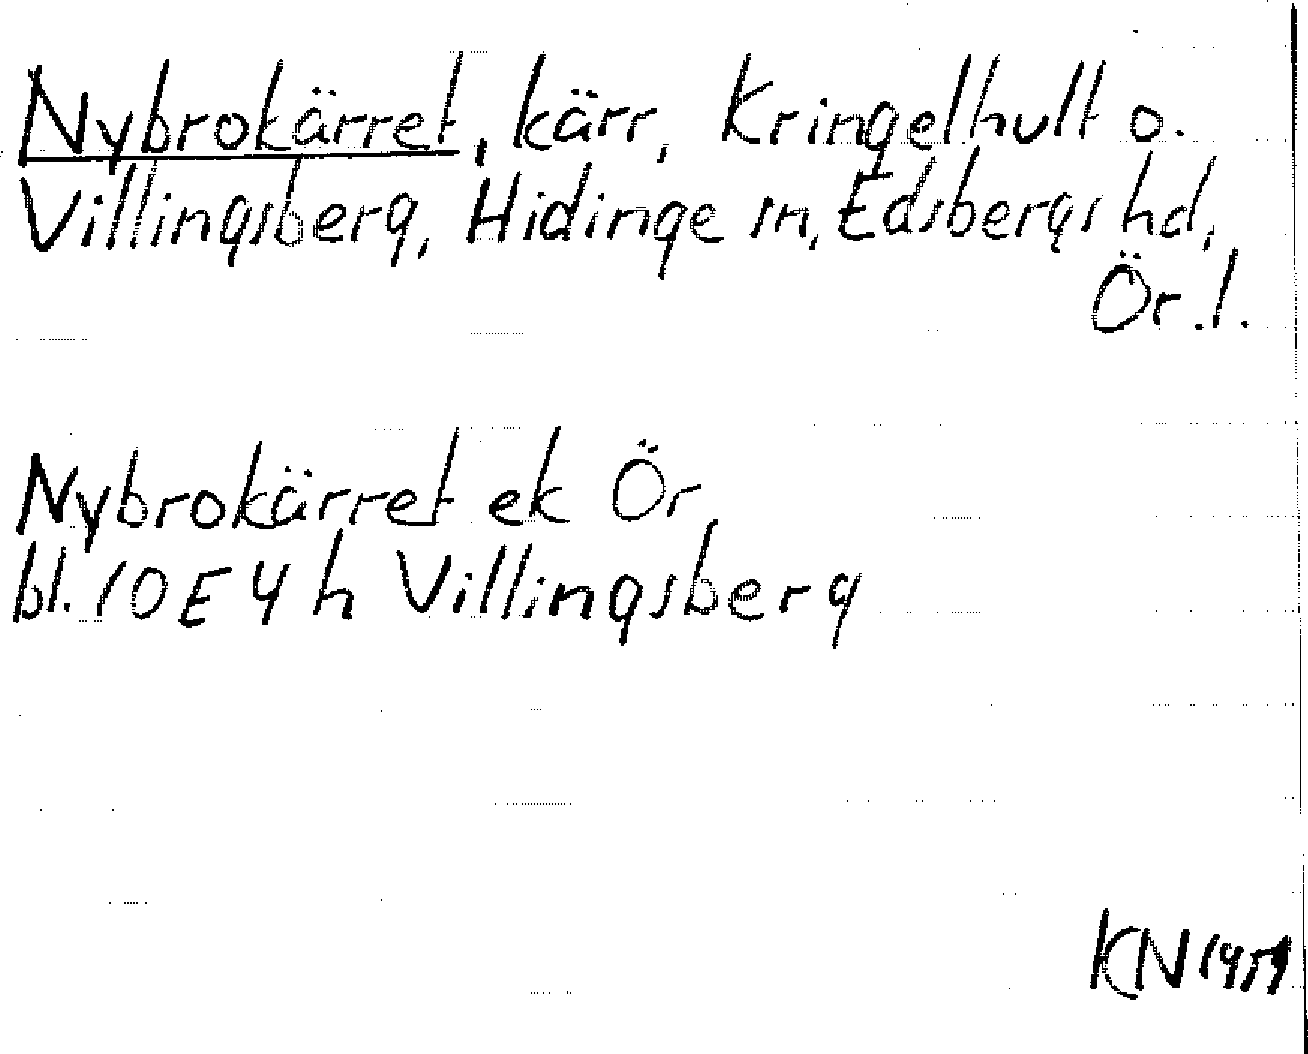 Nybrokärret, kärr, Kringelhult o.
Villingsberg, Hidinge sn, Edsbergs hd,
Ör.l.
Nybrokärret ek Ör,
bl. 10E4h Villingsberg
KN